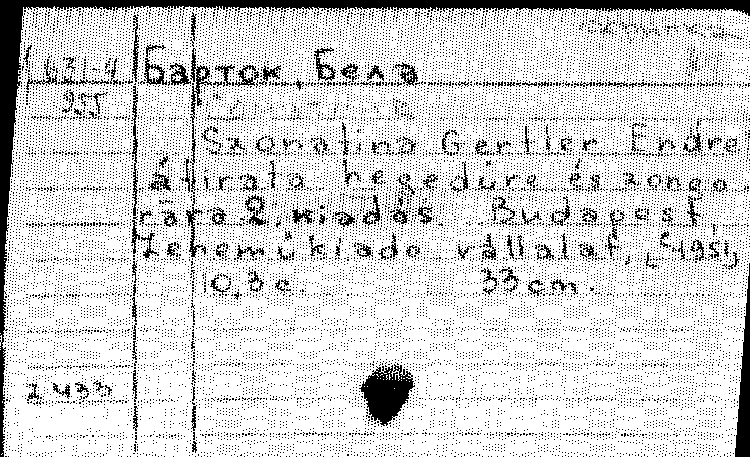 631-4 Барток, Бела
955
Szonatina Gertler Endre
átirata hegedüre és zongo-
rára. 2. kiadás. Budapest,
Zenemükiado vállalat, [c1951]
10, 3 c. 33 cm.
2433